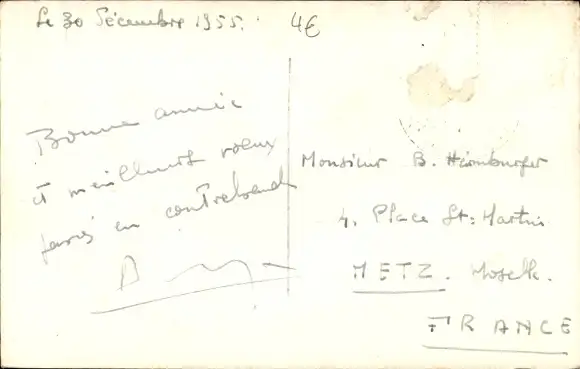 Le 30 Décembre 1955. 4€
Bonne année
et meilleurs voeux
en contrebande
Monsieur B. Hamburger
4, Place St: Martin
METZ. Moselle.
FRANCE